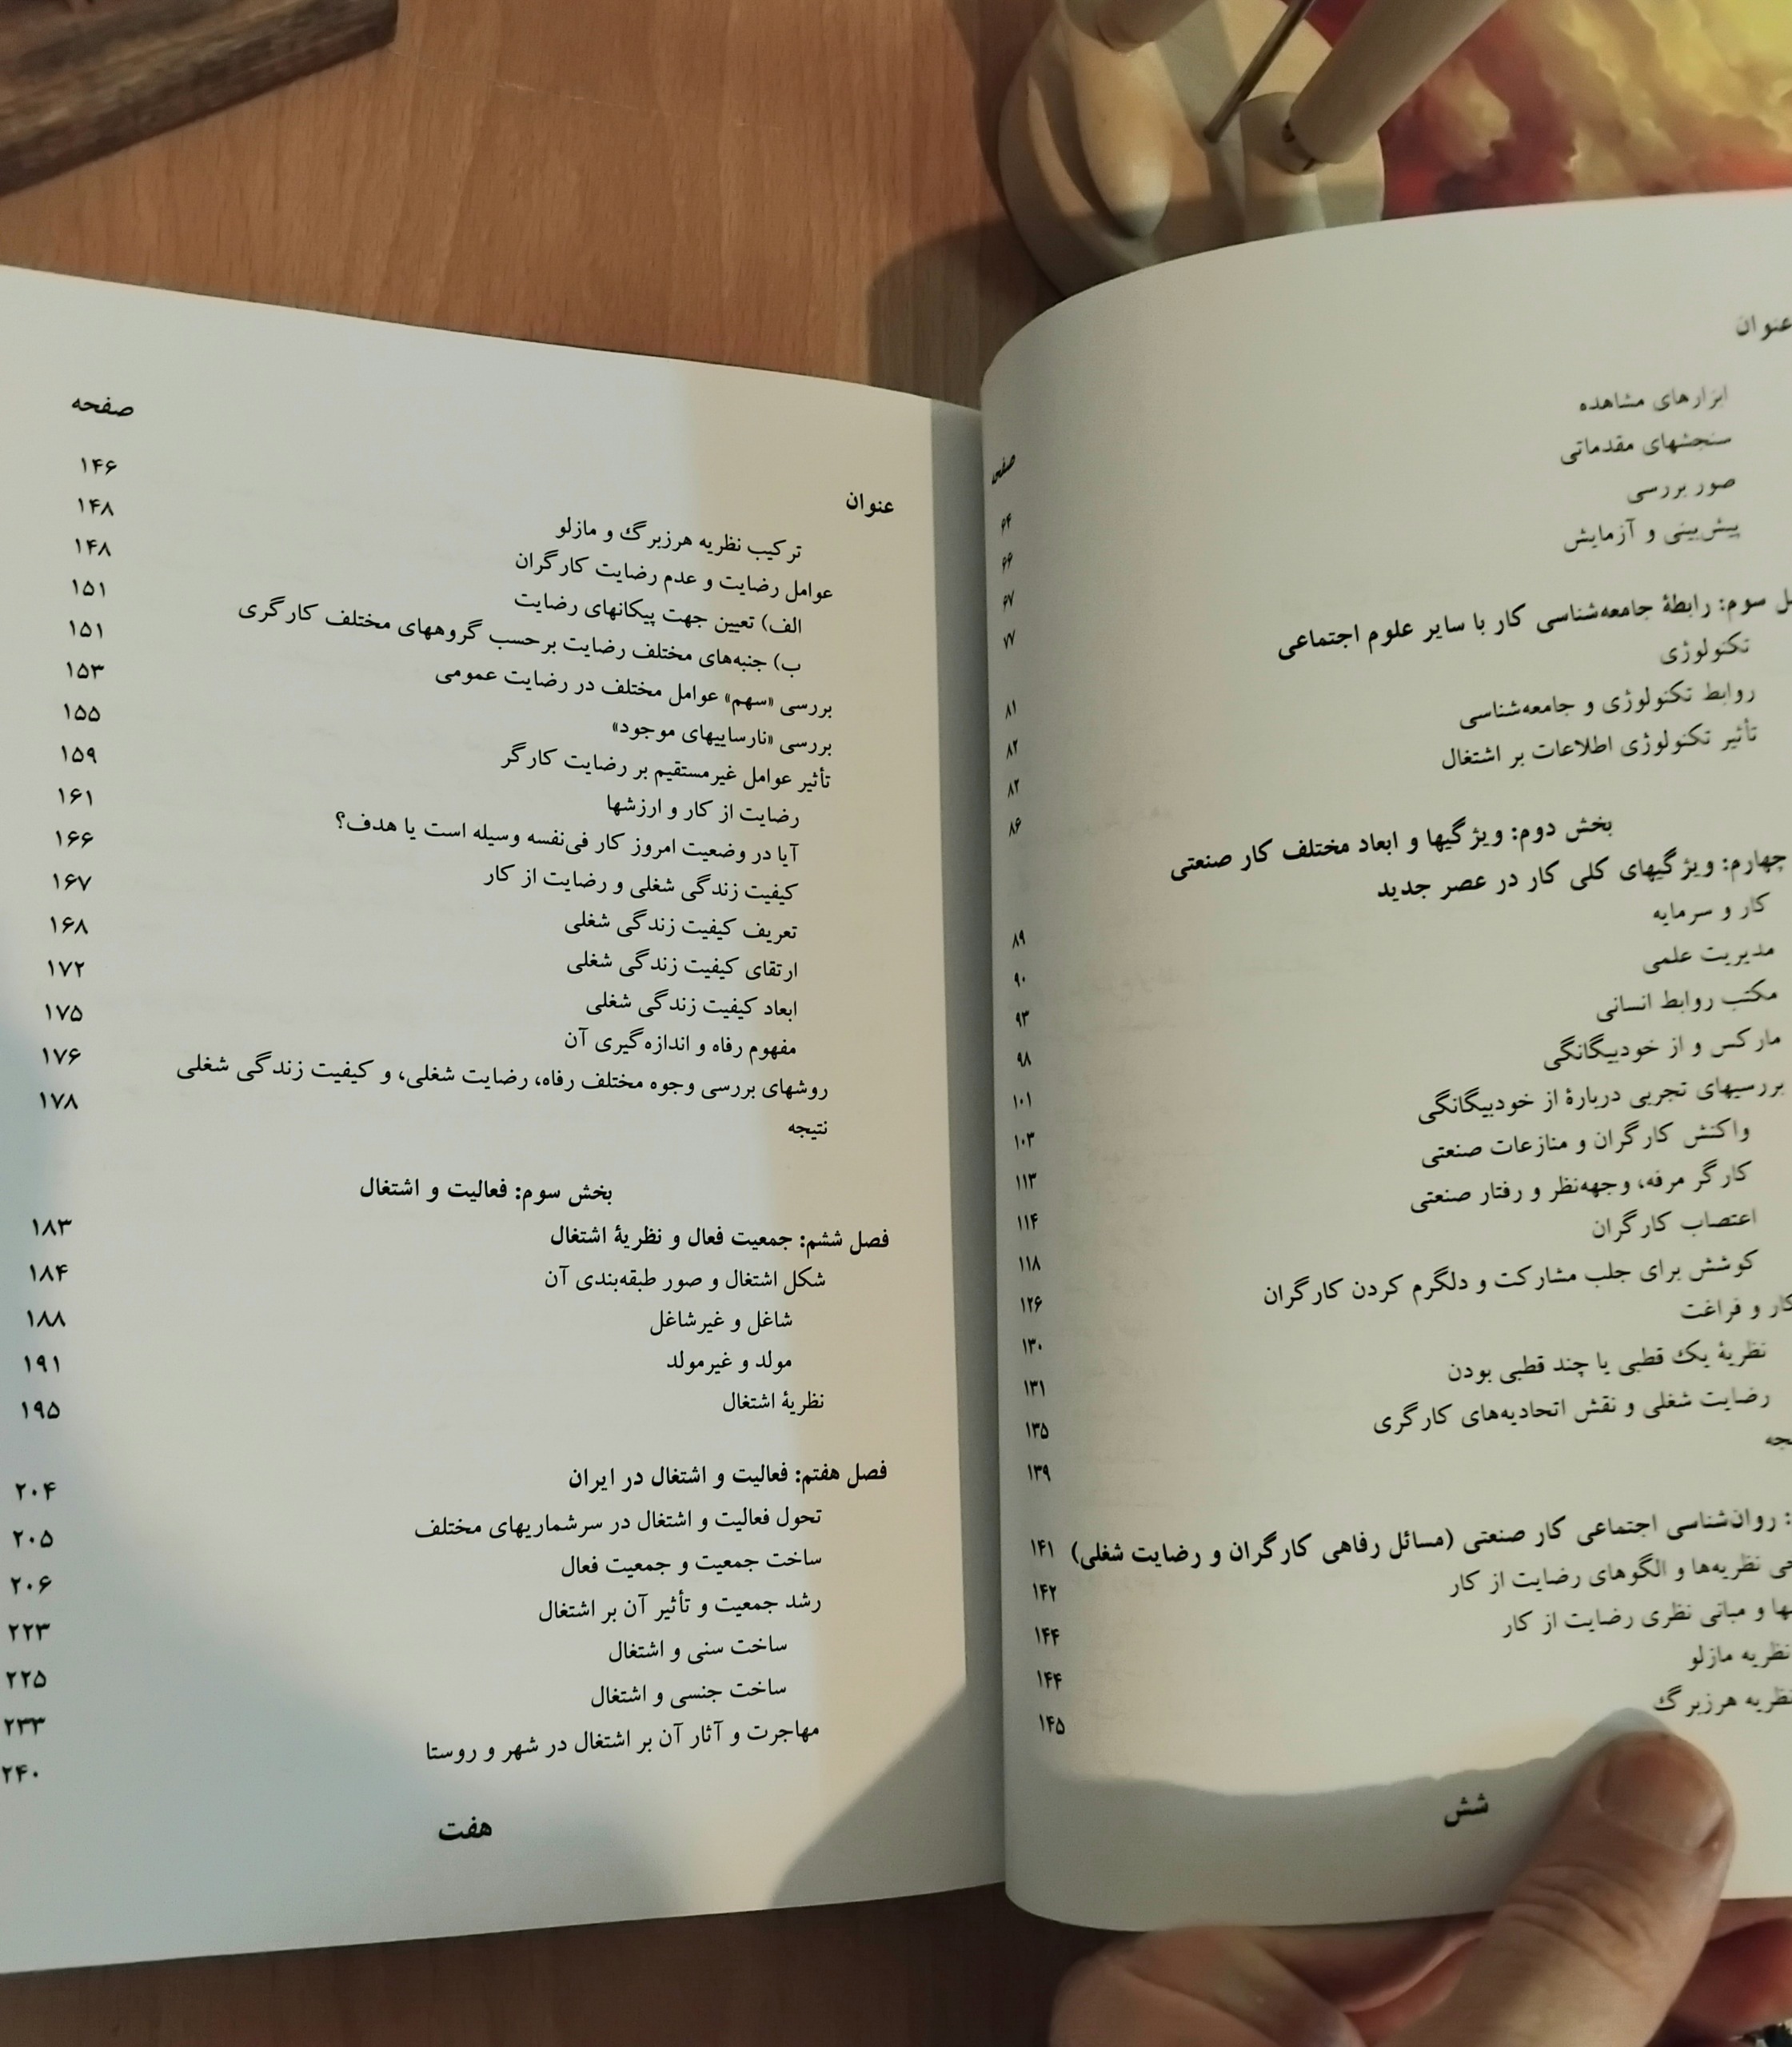 عنوان
صفحه
ابزارهای مشاهده ۶۴
سنجشهای مقدماتی ۶۶
صور بررسی ۶۷
پیش‌بینی و آزمایش ۷۷
سوم: رابطهٔ جامعه‌شناسی کار با سایر علوم اجتماعی ۸۱
تکنولوژی ۸۲
روابط تکنولوژی و جامعه‌شناسی ۸۲
تأثیر تکنولوژی اطلاعات بر اشتغال ۸۶
بخش دوم: ویژگیها و ابعاد مختلف کار صنعتی
چهارم: ویژگیهای کلی کار در عصر جدید ۸۹
کار و سرمایه ۹۰
مدیریت علمی ۹۳
مکتب روابط انسانی ۹۸
مارکس و از خودبیگانگی ۱۰۱
بررسیهای تجربی دربارهٔ از خودبیگانگی ۱۰۳
واکنش کارگران و منازعات صنعتی ۱۱۳
کارگر مرفه، وجهه‌نظر و رفتار صنعتی ۱۱۴
اعتصاب کارگران ۱۱۸
کوشش برای جلب مشارکت و دلگرم کردن کارگران ۱۲۶
کار و فراغت ۱۳۰
نظریهٔ یک قطبی یا چند قطبی بودن ۱۳۱
رضایت شغلی و نقش اتحادیه‌های کارگری ۱۳۵
۱۳۹
: روان‌شناسی اجتماعی کار صنعتی (مسائل رفاهی کارگران و رضایت شغلی) ۱۴۱
نظریه‌ها و الگوهای رضایت از کار ۱۴۲
و مبانی نظری رضایت از کار ۱۴۴
نظریه مازلو ۱۴۴
نظریه هرزبرگ ۱۴۵
شش
عنوان
صفحه
ترکیب نظریه هرزبرگ و مازلو ۱۴۶
عوامل رضایت و عدم رضایت کارگران ۱۴۸
الف) تعیین جهت پیکانهای رضایت ۱۴۸
ب) جنبه‌های مختلف رضایت برحسب گروههای مختلف کارگری ۱۵۱
بررسی «سهم» عوامل مختلف در رضایت عمومی ۱۵۱
بررسی «نارساییهای موجود» ۱۵۳
تأثیر عوامل غیرمستقیم بر رضایت کارگر ۱۵۵
رضایت از کار و ارزشها ۱۵۹
آیا در وضعیت امروز کار فی‌نفسه وسیله است یا هدف؟ ۱۶۱
کیفیت زندگی شغلی و رضایت از کار ۱۶۶
تعریف کیفیت زندگی شغلی ۱۶۷
ارتقای کیفیت زندگی شغلی ۱۶۸
ابعاد کیفیت زندگی شغلی ۱۷۲
مفهوم رفاه و اندازه‌گیری آن ۱۷۵
روشهای بررسی وجوه مختلف رفاه، رضایت شغلی، و کیفیت زندگی شغلی ۱۷۶
نتیجه ۱۷۸
بخش سوم: فعالیت و اشتغال
فصل ششم: جمعیت فعال و نظریهٔ اشتغال ۱۸۳
شکل اشتغال و صور طبقه‌بندی آن ۱۸۴
شاغل و غیرشاغل ۱۸۸
مولد و غیرمولد ۱۹۱
نظریهٔ اشتغال ۱۹۵
فصل هفتم: فعالیت و اشتغال در ایران ۲۰۴
تحول فعالیت و اشتغال در سرشماریهای مختلف ۲۰۵
ساخت جمعیت و جمعیت فعال ۲۰۶
رشد جمعیت و تأثیر آن بر اشتغال ۲۲۳
ساخت سنی و اشتغال ۲۲۵
ساخت جنسی و اشتغال ۲۳۳
مهاجرت و آثار آن بر اشتغال در شهر و روستا ۲۴۰
هفت